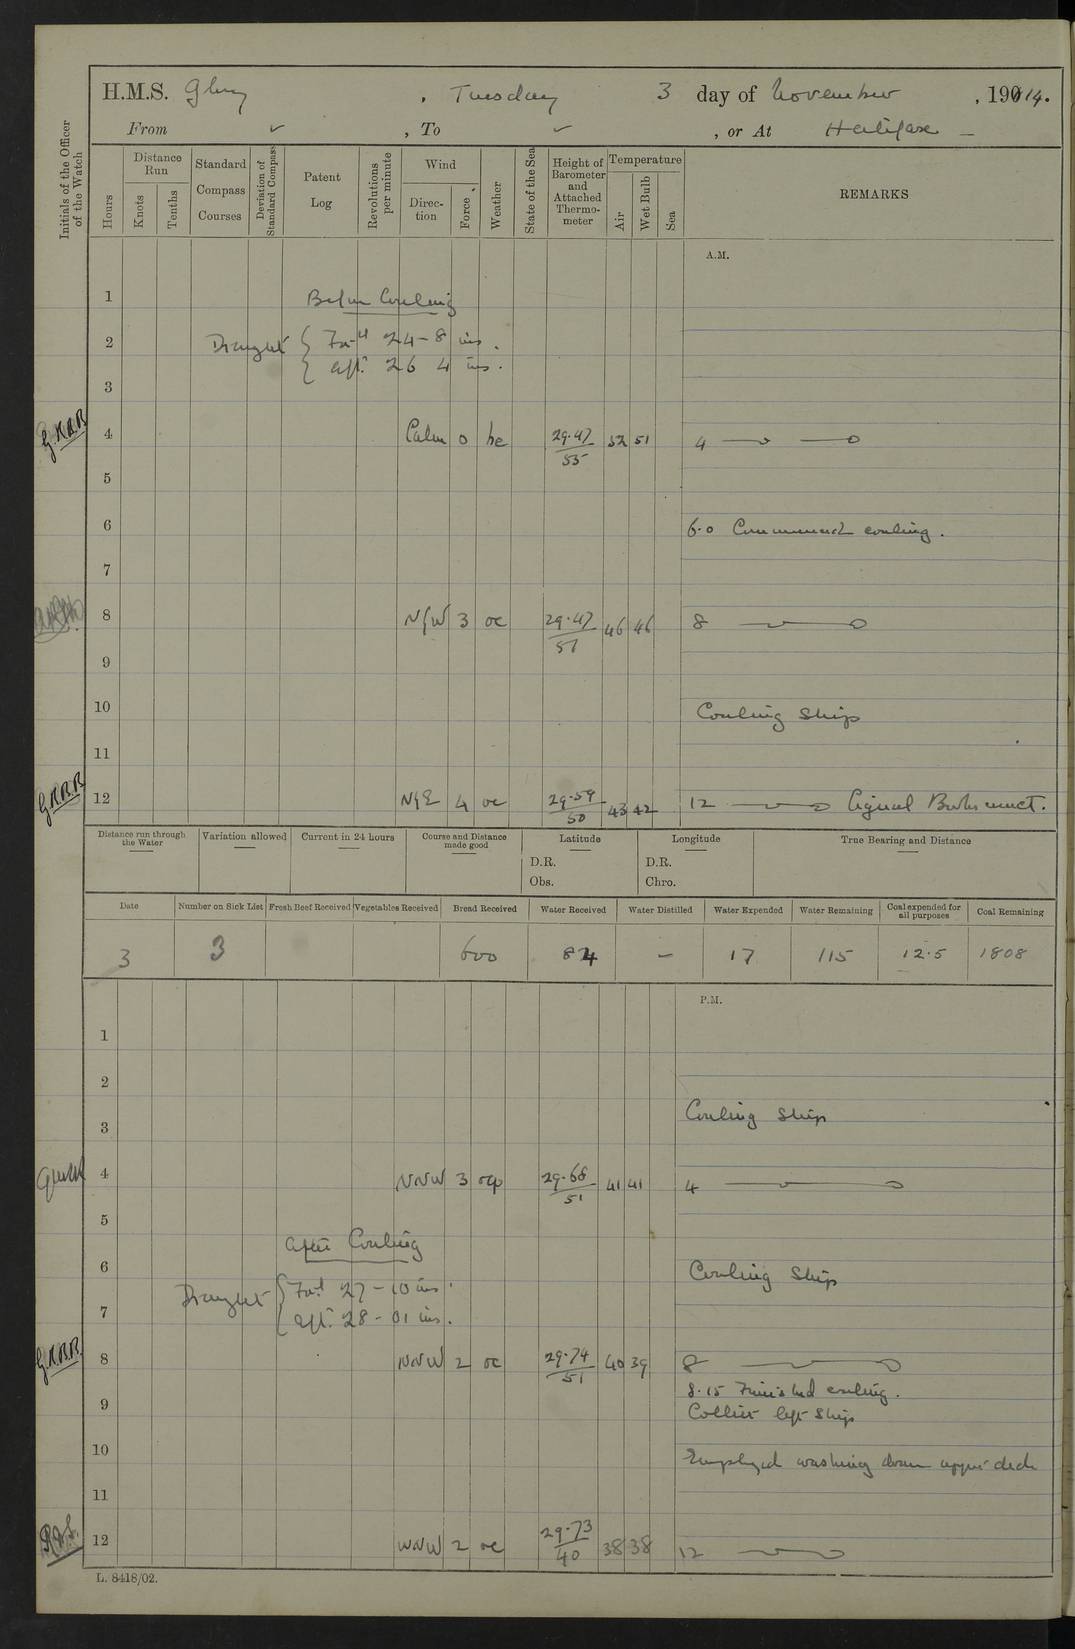 H.M.S. Glory , Tuesday 3 day of November , 1914.
From ✓ , To ✓ , or At Halifax —
Initials of the Officer of the Watch
Hours
Distance Run
Knots
Tenths
Standard Compass Courses
Deviation of Standard Compass
Patent Log
Revolutions per minute
Wind
Direction
Force
Weather
State of the Sea
Height of Barometer and Attached Thermometer
Temperature
Air
Wet Bulb
Sea
REMARKS
A.M.
1
Before Coaling
2 Draught { For'd 24-8 ins.
aft. 26 4 ins.
3
4 Calm 0 bc 29.47/55 52 51 4
5
6 6.0 Commenced coaling.
7
8 NNW 3 oc 29.47/51 46 46 8
9
10 Coaling Ship
11
G.R.R.B 12 4 oc 29.59/50 43 42 12
Distance run through the Water
Variation allowed
Current in 24 hours
Course and Distance made good
Latitude
D.R.
Obs.
Longitude
D.R.
Chro.
True Bearing and Distance
Date Number on Sick List Fresh Beef Received Vegetables Received Bread Received Water Received Water Distilled Water Expended Water Remaining Coal expended for all purposes Coal Remaining
3 3 600 84 – 17 115 12.5 1808
P.M.
1
2
Coaling Ship
3
4 NNW 3 ocp 29.68/51 41 41 4
5
After Coaling
6 Coaling Ship
Draught { For'd 27-10 ins.
7 aft. 28-01 ins.
8 NNW 2 oc 29.74/51 40 39 8
8.15 Finished coaling.
9 Collier left ship
10 Employed washing down upper deck
11
12 WNW 2 oc 29.73/40 38 38 12
L. 8418/02.